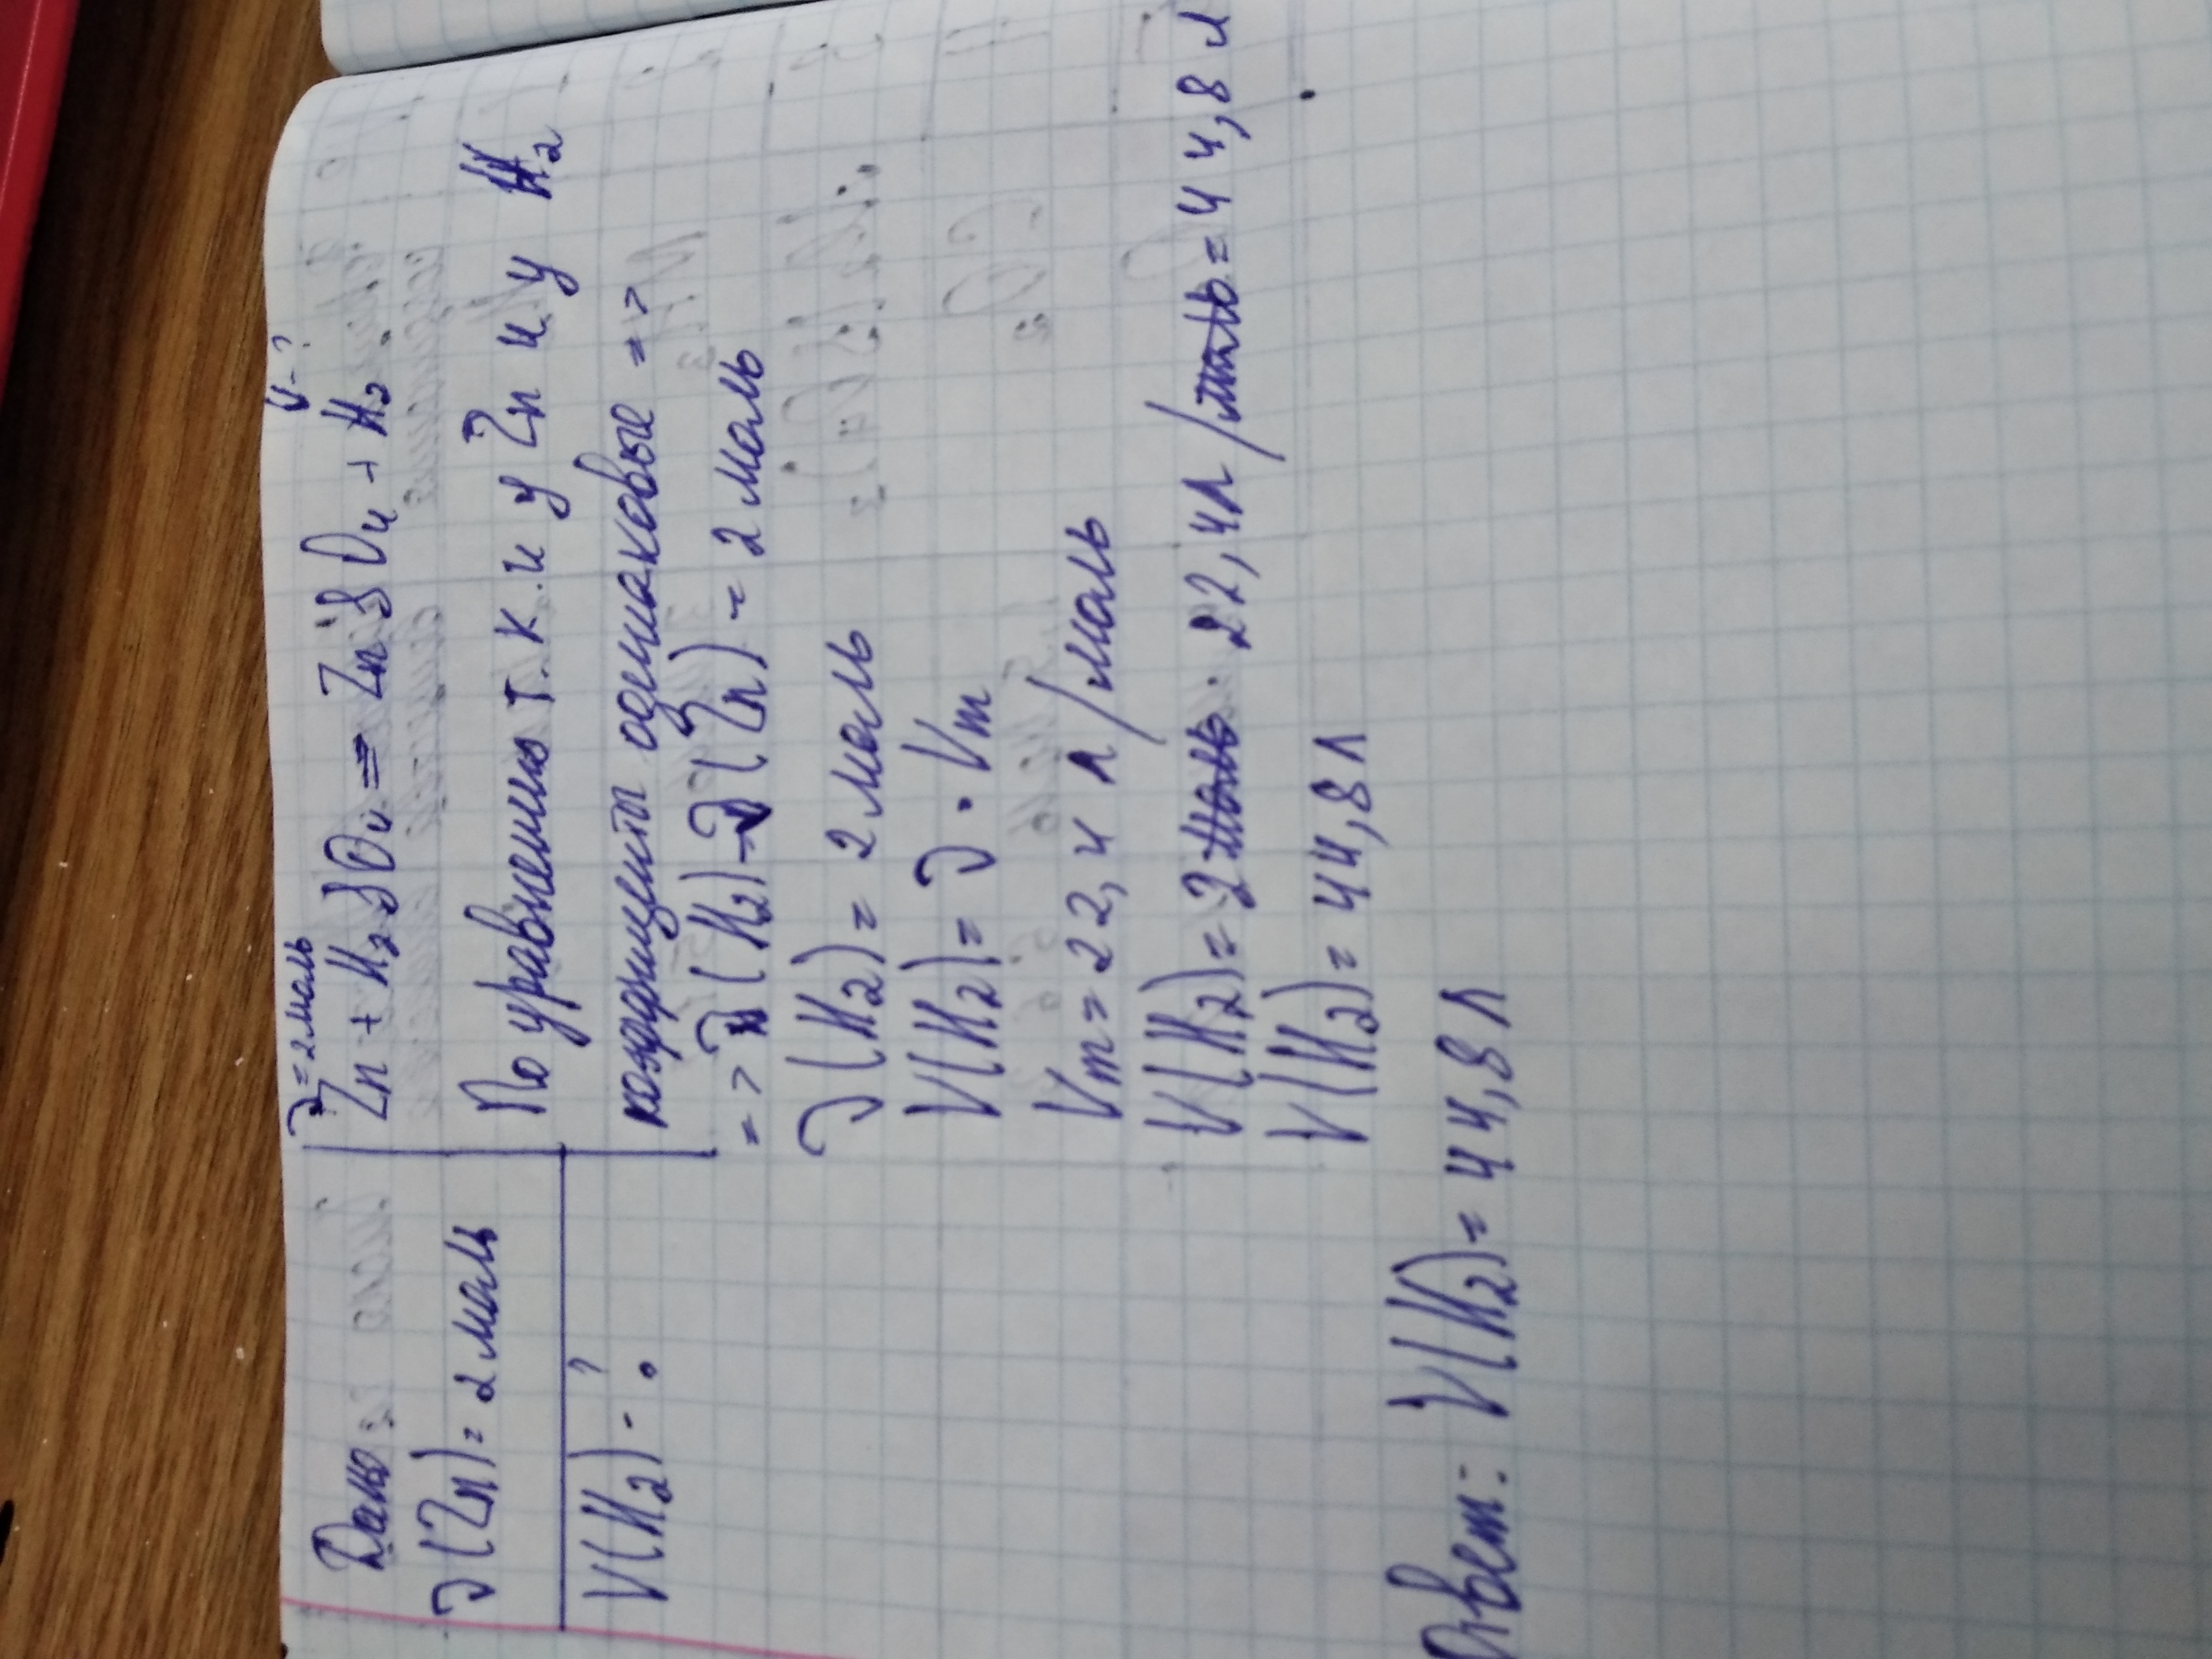 Дано:
ν(Zn)= 2 моль
V(H₂) - ?
ν=2моль V-?
Zn + H₂SO₄ = ZnSO₄ + H₂
По уравнению т.к. и у Zn и у H₂
коэффициент одинаковые =>
=> ν(H₂)-ν(Zn) = 2 моль
ν(H₂) = 2 моль
V(H₂)= ν · Vm
Vm= 22,4 л/моль
V(H₂)= 2 моль · 22,4л/моль=44,8 л
V(H₂)= 44,8 л
Ответ: V(H₂)= 44,8 л